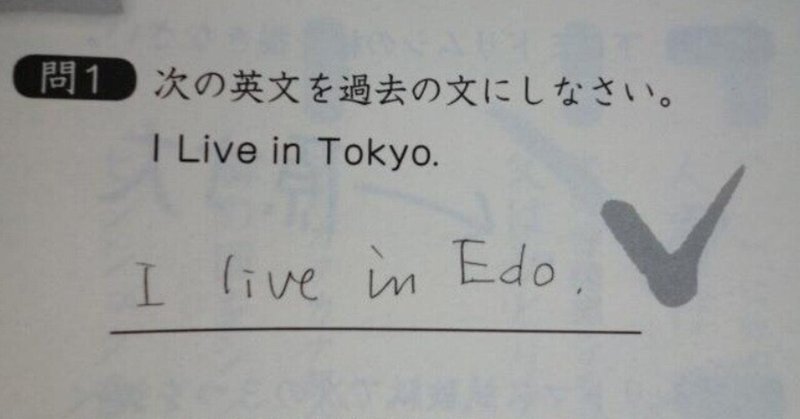 問1 次の英文を過去の文にしなさい。
I Live in Tokyo.
I live in Edo.